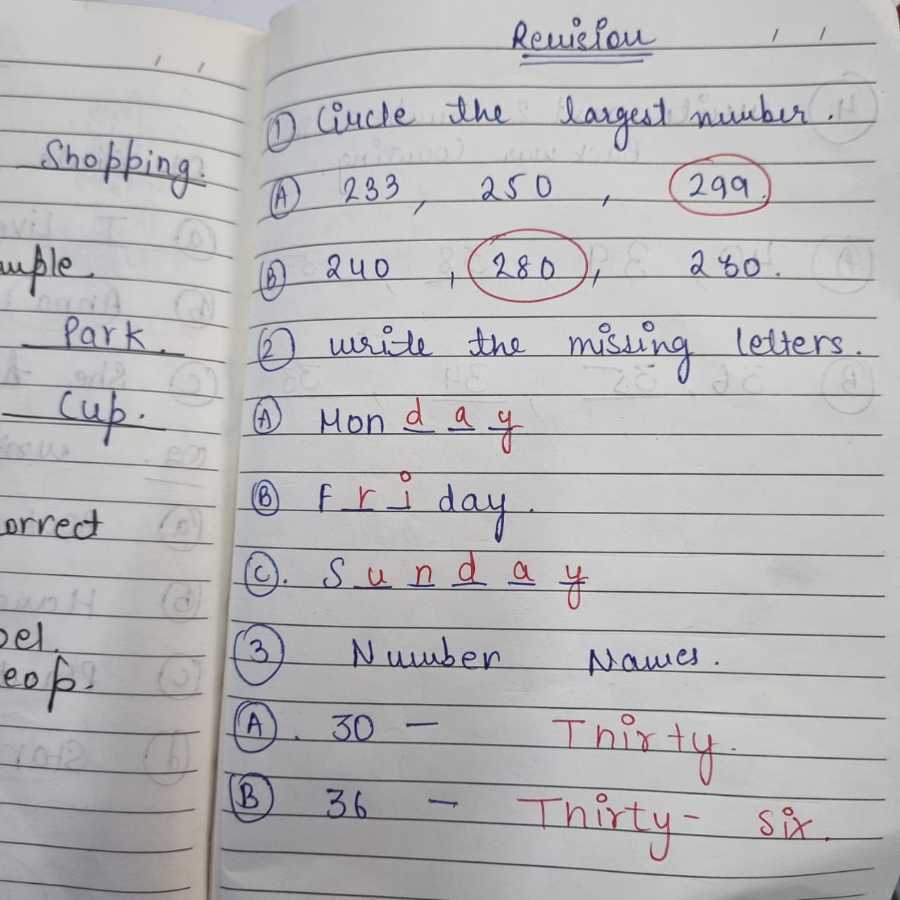 Shopping.
Park.
Cup.
orrect
Revision
① Circle the largest number.
Ⓐ 233, 250, 299.
Ⓑ 240, 280,
② write the missing letters.
Ⓐ Mon d a y
Ⓑ F r i day.
Ⓒ. S u n d a y
③ Number Names.
Ⓐ. 30 — Thirty.
Ⓑ 36 — Thirty- six.